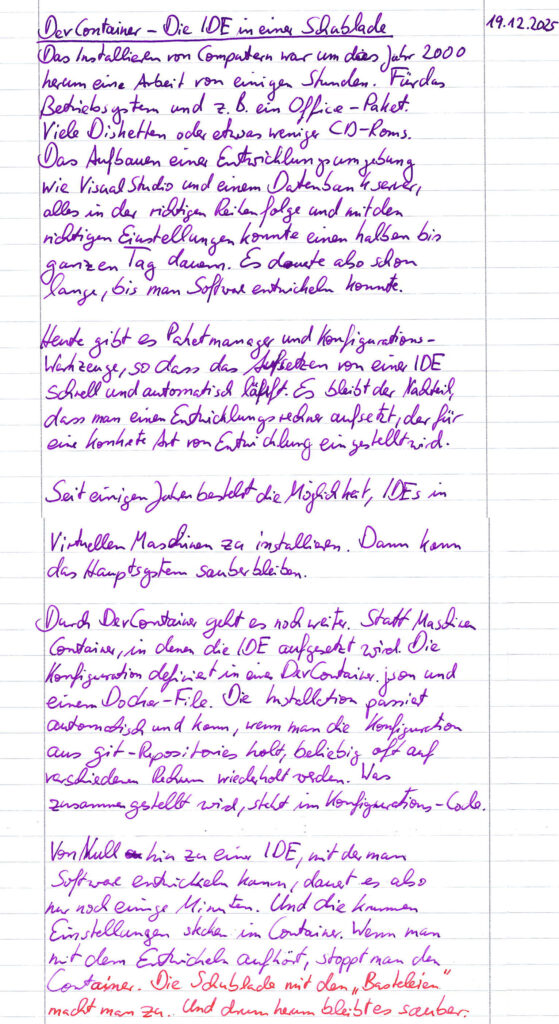 DevContainer – Die IDE in einer Schublade 19.12.2025
Das Installieren von Computern war um das Jahr 2000
herum eine Arbeit von einigen Stunden. Für das
Betriebssystem und z.B. ein Office-Paket.
Viele Disketten oder etwas weniger CD-Roms.
Das Aufbauen einer Entwicklungsumgebung
wie Visual Studio und einem Datenbankserver,
alles in der richtigen Reihenfolge und mit den
richtigen Einstellungen konnte einen halben bis
ganzen Tag dauern. Es dauerte also schon
lange, bis man Software entwickeln konnte.
Heute gibt es Paketmanager und Konfigurations-
Werkzeuge, so dass das Aufsetzen von einer IDE
schnell und automatisch läuft. Es bleibt der Nachteil,
dass man einen Entwicklungsrechner aufsetzt, der für
eine konkrete Art von Entwicklung eingestellt wird.
Seit einigen Jahren besteht die Möglichkeit, IDEs in
Virtuellen Maschinen zu installieren. Dann kann
das Hauptsystem sauber bleiben.
Durch DevContainer geht es noch weiter. Statt Maschinen
Container, in denen die IDE aufgesetzt wird. Die
Konfiguration definiert in einer DevContainer.json und
einem Docker-File. Die Installation passiert
automatisch und kann, wenn man die Konfiguration
aus git-Repositories holt, beliebig oft auf
verschiedenen Rechnern wiederholt werden. Was
zusammengestellt wird, steht im Konfigurations-Code.
Von Null hin zu einer IDE, mit der man
Software entwickeln kann, dauert es also
nur noch einige Minuten. Und die krummen
Einstellungen stecken im Container. Wenn man
mit dem Entwickeln aufhört, stoppt man den
Container. Die Schublade mit den „Basteleien“
macht man zu. Und drum herum bleibt es sauber.